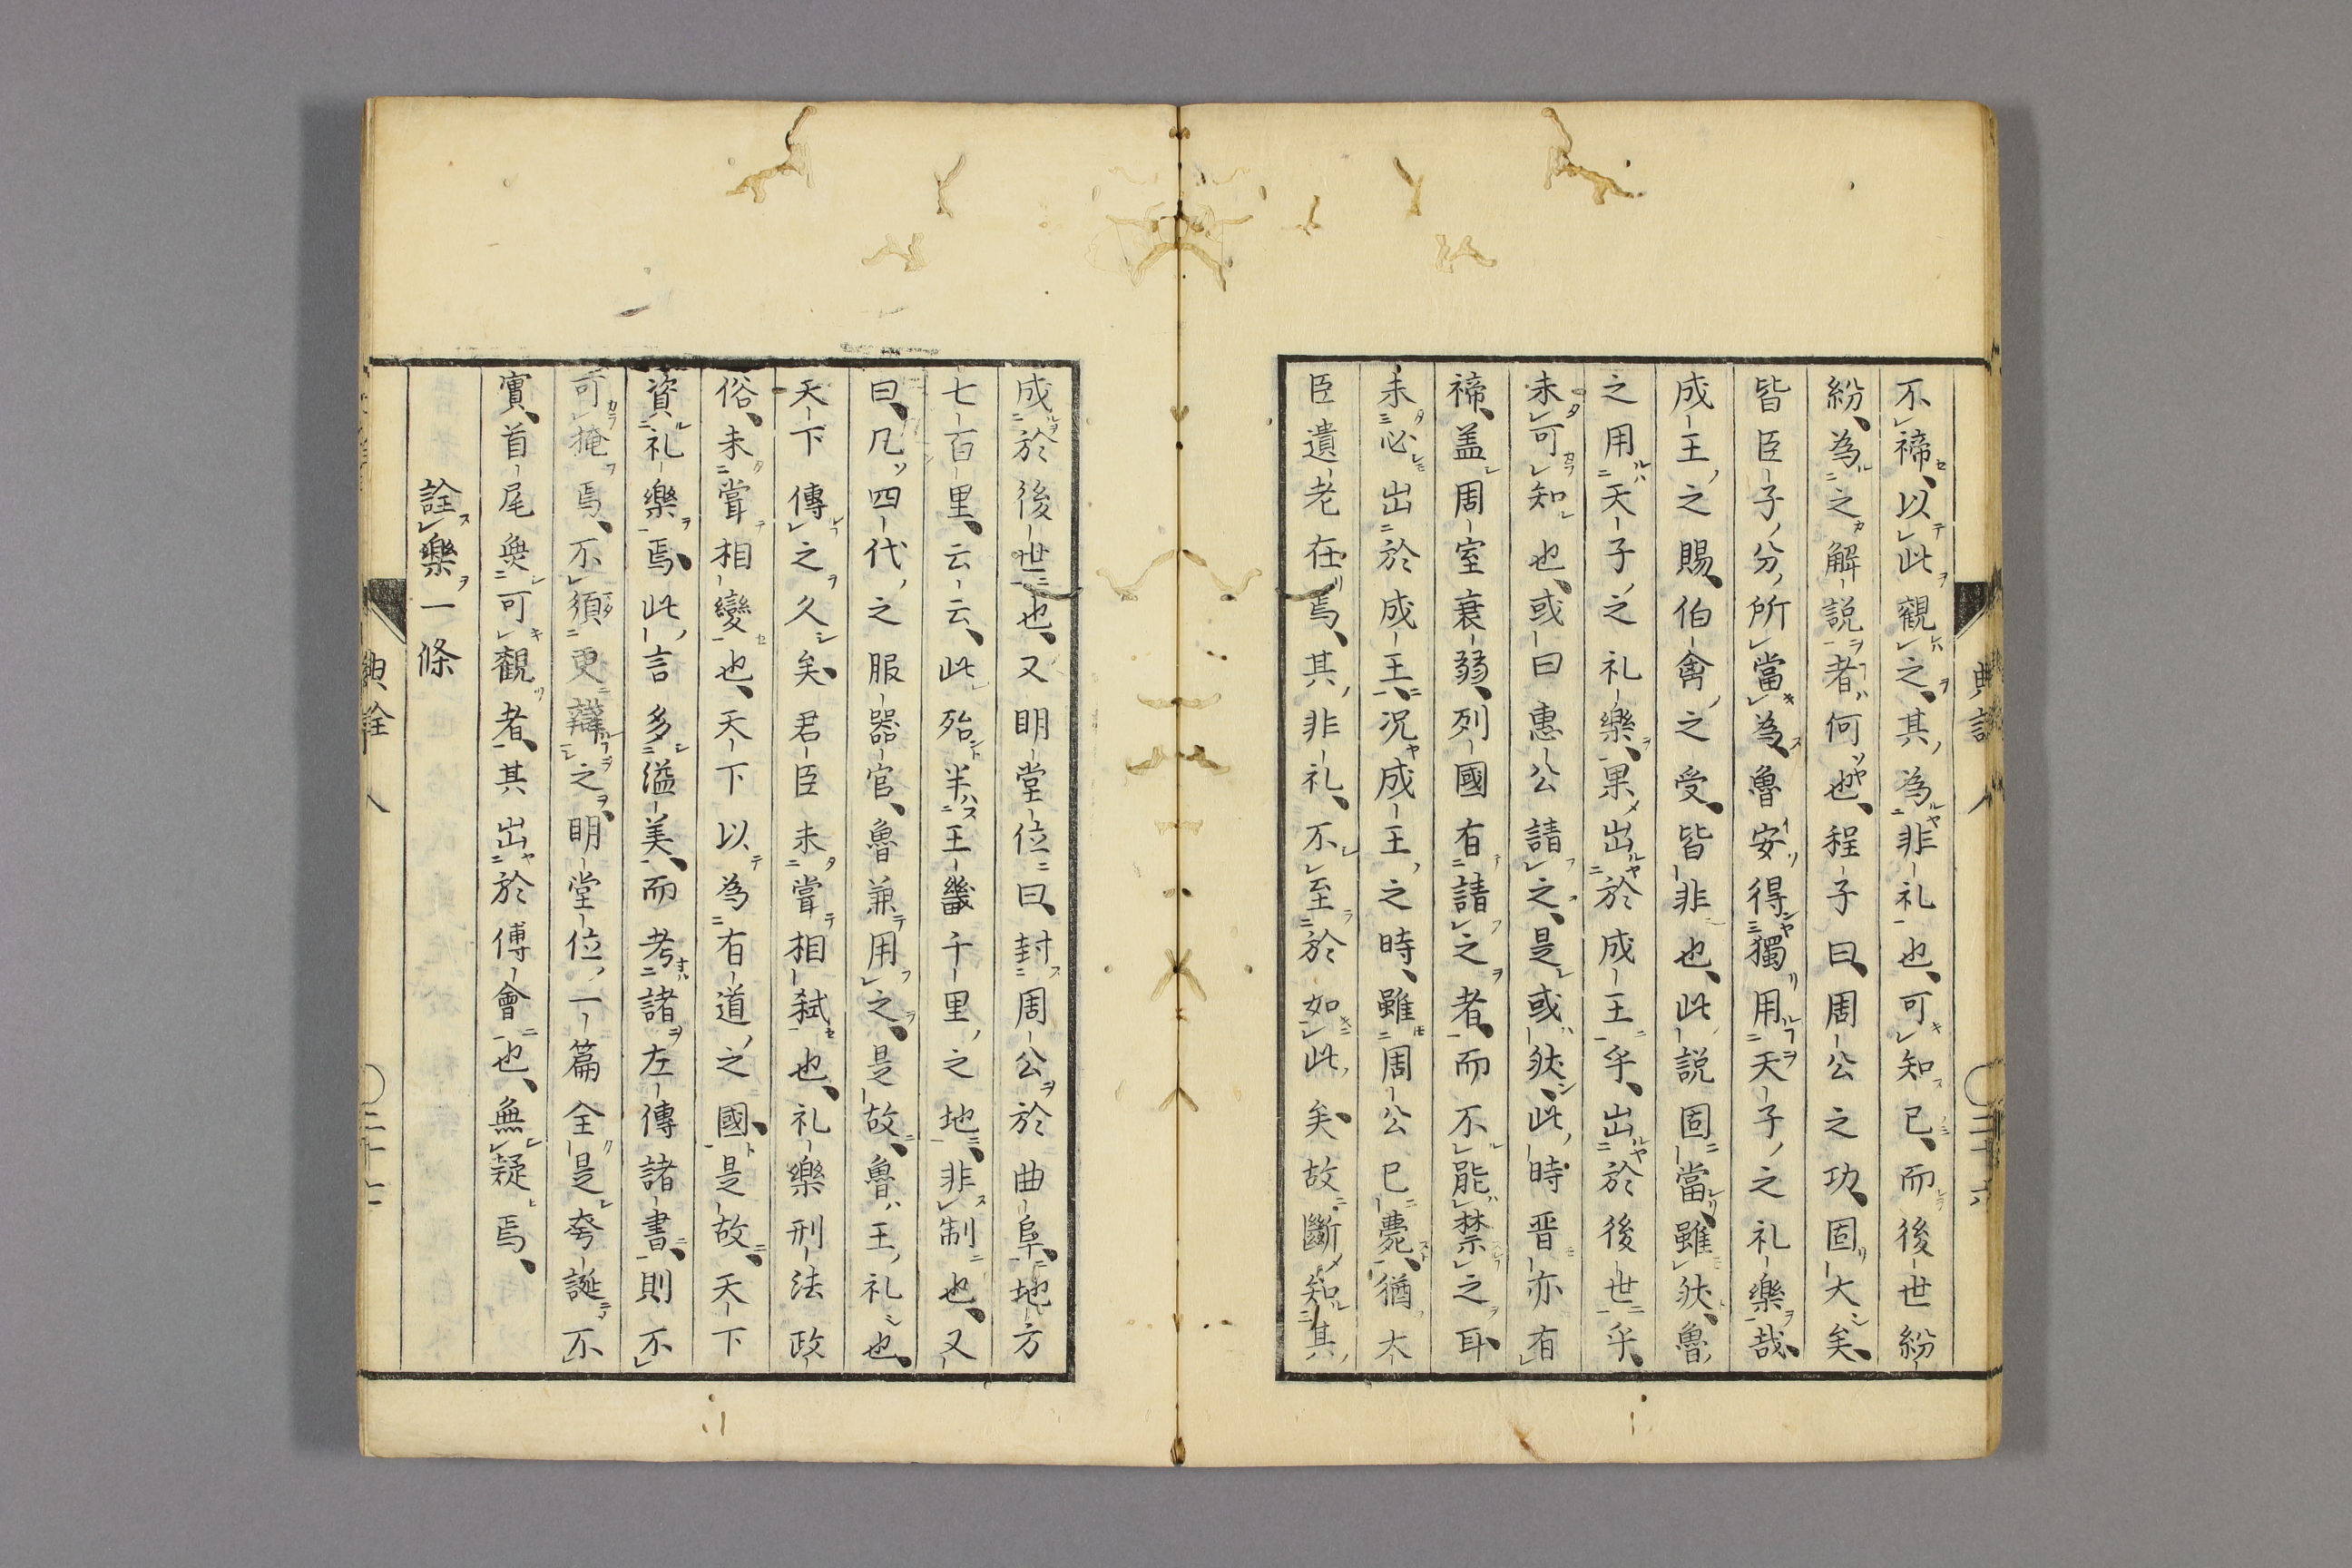 不禘、以此觀之、其為非礼也、可知已、而後世紛
紛、為之解説者何也、程子曰、周公之功、固大矣、
皆臣子分所當為、魯安得獨用天子之礼樂哉、
成王之賜、伯禽之受、皆非也、此説固當、雖然、魯
之用天子之礼樂、果出於成王乎、出於後世乎、
未可知也、或曰惠公請之、是或然、此時晋亦有
禘、盖周室衰弱、列國有請之者、而不能禁之耳、
未必出於成王、况成王之時、雖周公已薨、猶大
臣遺老在焉、其非礼、不至於如此矣、故斷知其
成於後世也、又明堂位曰、封周公於曲阜、地方
七百里、云云、此殆半王畿千里之地、非制也、又
曰、凡四代之服器官、魯兼用之、是故、魯王礼也、
天下傳之久矣、君臣未嘗相弑也、礼樂刑法政
俗、未嘗相變也、天下以為有道之國、是故、天下
資礼樂焉、此言多溢美、而考諸左傳諸書、則不
可掩焉、不須更辯之、明堂位一篇全是夸誕、不
實、首尾無可觀者、其出於傅會也、無疑焉、
詮樂一條
典詮 八